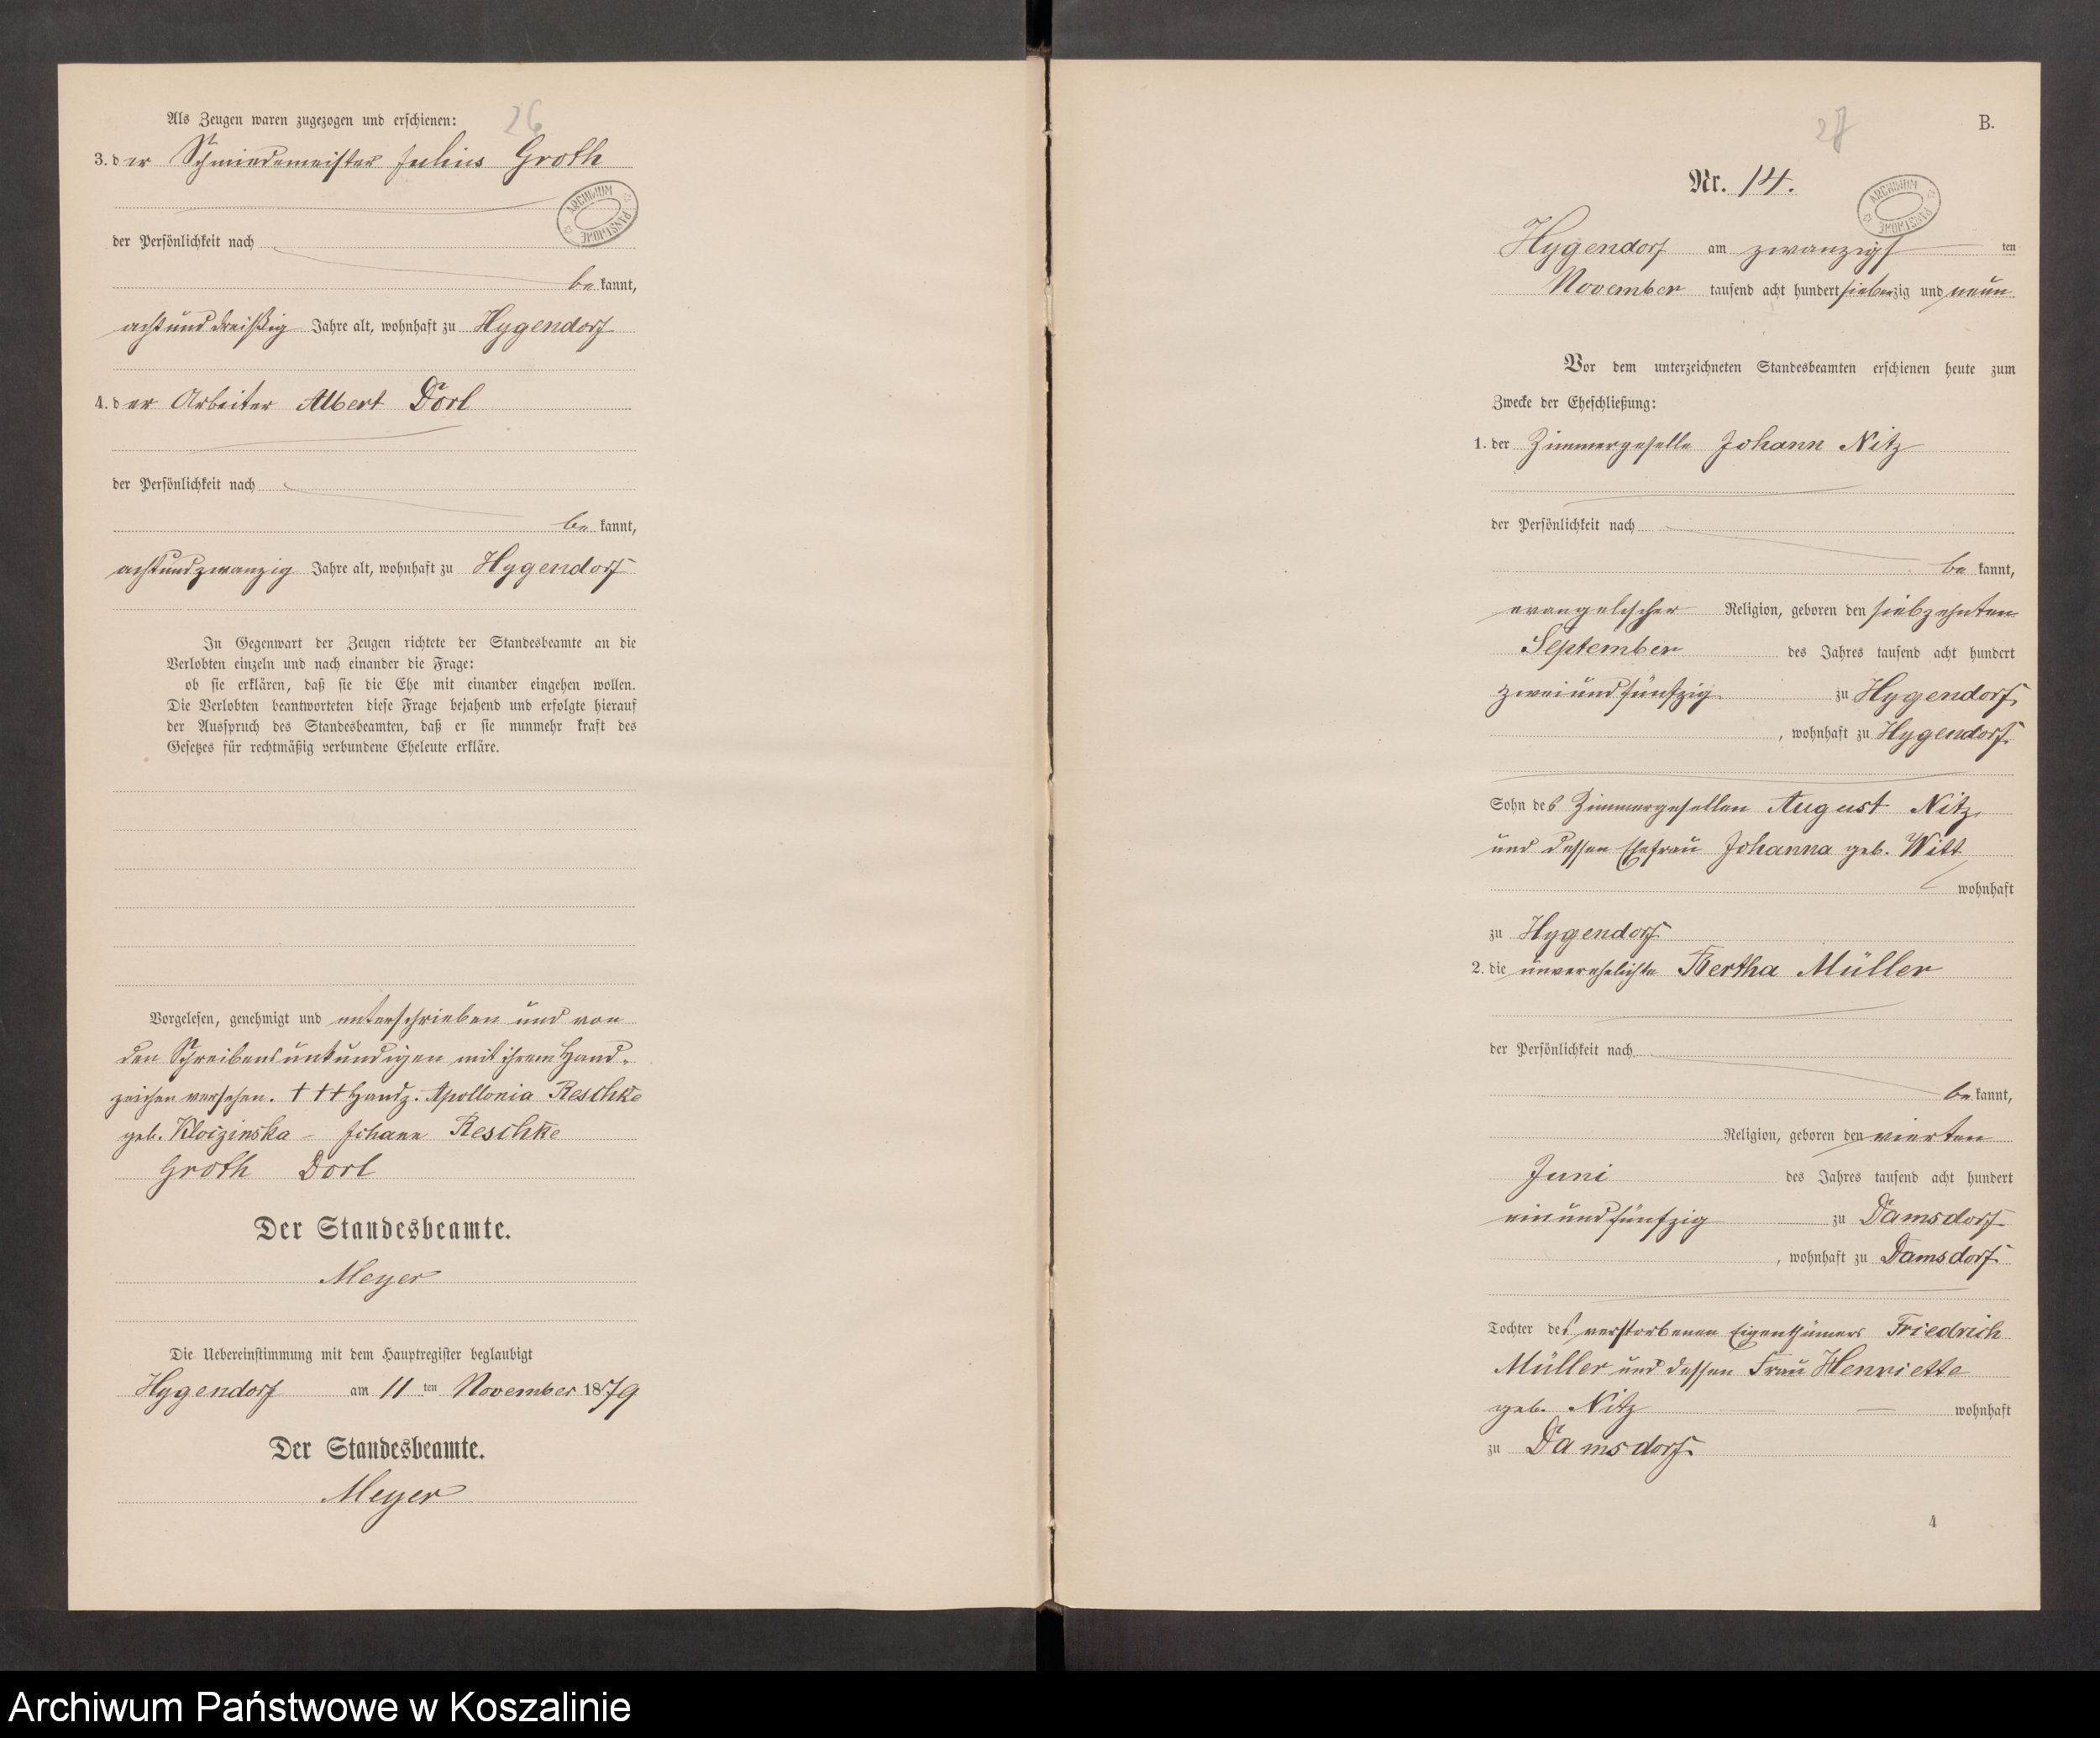 26
Als Zeugen waren zugezogen und erschienen:
3. der Schmiedemeister Julius Groth
ARCHIWUM PAŃSTWOWE
der Persönlichkeit nach
bekannt,
achtunddreißig Jahre alt, wohnhaft zu Hygendorf
4. der Arbeiter Albert Dorl
der Persönlichkeit nach
bekannt,
achtundzwanzig Jahre alt, wohnhaft zu Hygendorf
In Gegenwart der Zeugen richtete der Standesbeamte an die
Verlobten einzeln und nach einander die Frage:
ob sie erklären, daß sie die Ehe mit einander eingehen wollen.
Die Verlobten beantworteten diese Frage bejahend und erfolgte hierauf
der Ausspruch des Standesbeamten, daß er sie nunmehr kraft des
Gesetzes für rechtmäßig verbundene Eheleute erkläre.
Vorgelesen, genehmigt und unterschrieben und von
den Schreibensunkundigen mit ihrem Hand-
zeichen versehen. +++ Handz. Apollonia Reschke
geb. Kloizinska - Johann Reschke
Groth Dorl
Der Standesbeamte.
Meyer
Die Uebereinstimmung mit dem Hauptregister beglaubigt
Hygendorf am 11 ten November 1879
Der Standesbeamte.
Meyer
27
B.
Nr. 14.
ARCHIWUM PAŃSTWOWE
Hygendorf am zwanzigsten
November tausend acht hundert siebenzig und neun
Vor dem unterzeichneten Standesbeamten erschienen heute zum
Zwecke der Eheschließung:
1. der Zimmergeselle Johann Nitz
der Persönlichkeit nach
bekannt,
evangelischer Religion, geboren den siebzehnten
September des Jahres tausend acht hundert
zweiundfünfzig zu Hygendorf
, wohnhaft zu Hygendorf
Sohn des Zimmergesellen August Nitz
und dessen Ehefrau Johanna geb. Witt
wohnhaft
zu Hygendorf
2. die unverehelichte Bertha Müller
der Persönlichkeit nach
bekannt,
Religion, geboren den vierten
Juni des Jahres tausend acht hundert
einundfünfzig zu Damsdorf
, wohnhaft zu Damsdorf
Tochter des verstorbenen Eigenthümers Friedrich
Müller und dessen Frau Henriette
geb. Nitz wohnhaft
zu Damsdorf
4
Archiwum Państwowe w Koszalinie